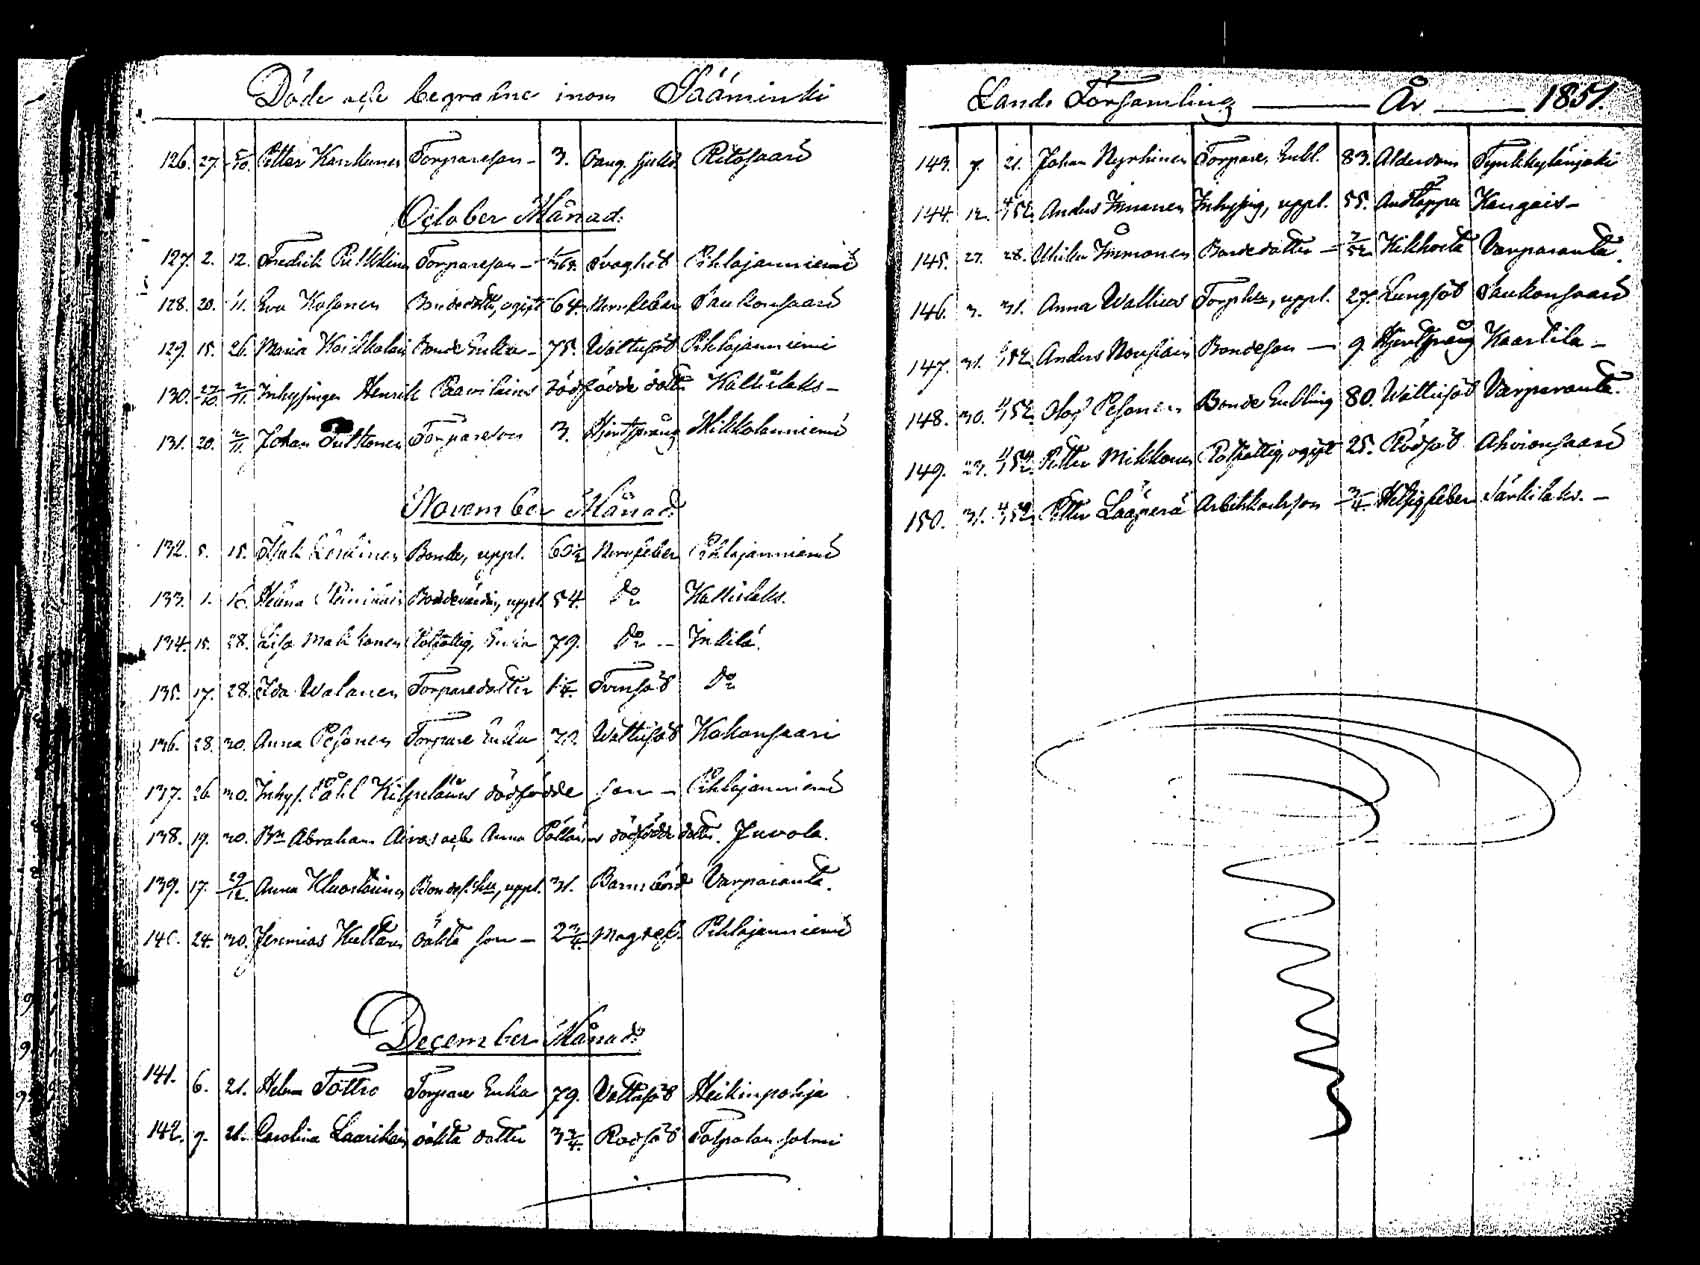 Döde och begrafne inom Sääminki
126. 27. 5/10. Petter Karhunen Torpareson – 3. Ritosaari
October Månad:
127. 2. 12. Fredrik Torpareson – Svaghet Pihlajanniemi
128. 20. 11. Eva Kosonen Bondedotter, ogift 64. Nervfeber Saukonsaari
129. 15. 26. Maria Bonde Enka – 75. Wattusot Pihlajanniemi
130. 27/10 2/11. Inhysingen Henrik Paavilainens dödfödde dotter Kallislaks –
131. 20. 2/11. Johan Torpareson 3. Hjertsprång Mikkolanniemi
November Månad:
132. 5. 15. Bonde, uppl. 60 1/2 Nervfeber Pihlajanniemi
133. 1. 16. Bondevärdin, uppl. 54. Do Kallislaks.
134. 15. 28. Lisa Makkonen Rotfattig, Enka 79. Do – Inkilä.
135. 17. 28. Ida Walanen Torparedotter Tvinsot Do
136. 28. 30. Anna Pesonen Torpare Enka 70. Wattusot Kokonsaari
137. 26. 30. Inhys. Påhl Kilpeläinens dödfödde son – Pihlajanniemi
138. 19. 30. Bn Abraham Aivas och Anna Pöllänens dödfödde dotter. Juvola.
139. 17. 29/12. Anna Bondes. hu, uppl. 31. Barnsbörd Varparanta.
140. 24. 30. Jeremias Hultanen oäkta son – 2 3/4. Magref. Pihlajanniemi
December Månad:
141. 6. 21. Helena Torpare Enka 79. Vattusot Heikinpohja
142. 7. 21. Carolina Laarikain oäkta dotter 3 3/4. Rödsot Tolpalansalmi
Lands Församling — År — 1851.
143. 7. 21. Johan Nyrhinen Torpare, Enkl. 83. Ålderdom
144. 12. 4/1 52. Anders Immonen Inhysing, uppl. 55. Andtäppa Kongais –
145. 27. 28. Ulrika Immonen Bondedotter – 2/52 Kikhosta Varparanta.
146. 3. 31. Anna Torphu, uppl. 27. Lungsot Saukonsaari
147. 31. 1/52. Anders Nousiain Bondeson – 9. Hjertsprång Kaartila –
148. 30. 4/1 52. Olof Pesonen Bonde Enkling 80. Wattusot Varparanta.
149. 23. 4/1 52. Petter Mikkonen Rotfattig, ogift 25. Rödsot Ahvionsaari
150. 31. 4/1 52. Petter Lääperä Arbetskarlsson – 3/4 Hetsigfeber Särkilaks. –